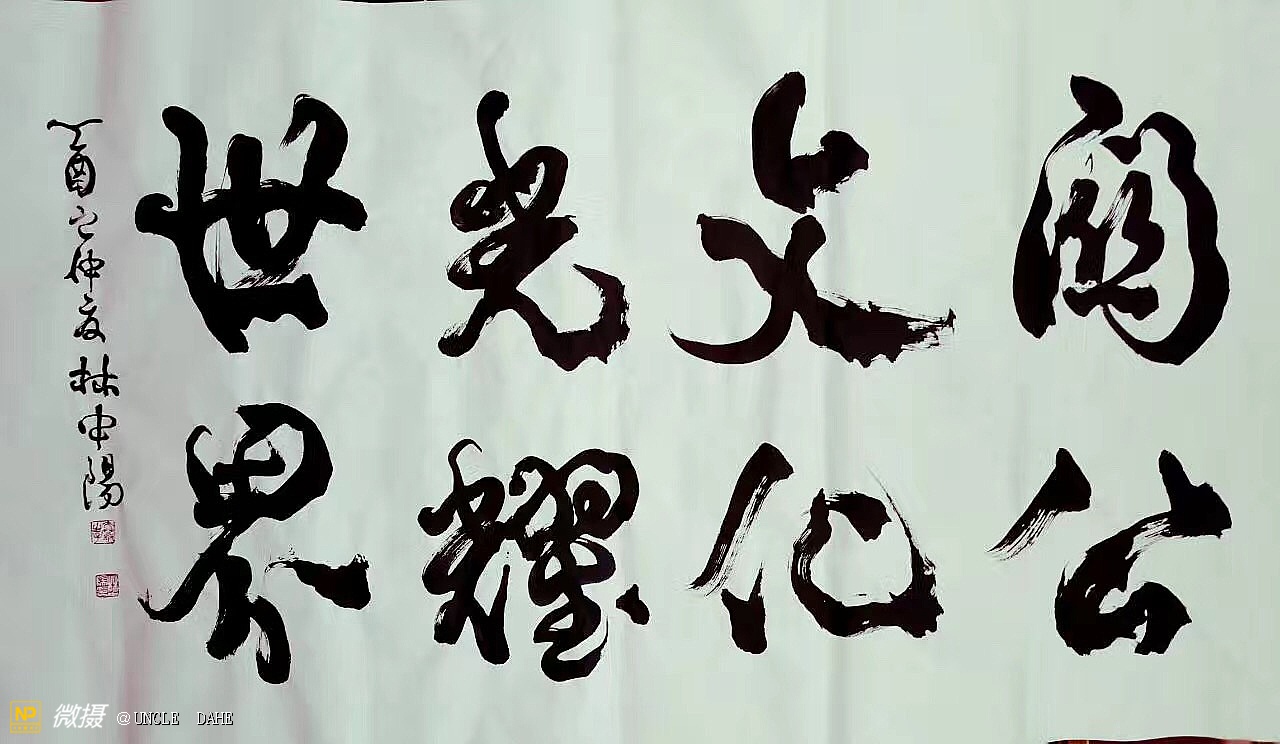 關公
文化
光耀
世界
丁酉之仲夏林中陽
NP 微摄 @UNCLE DAHE